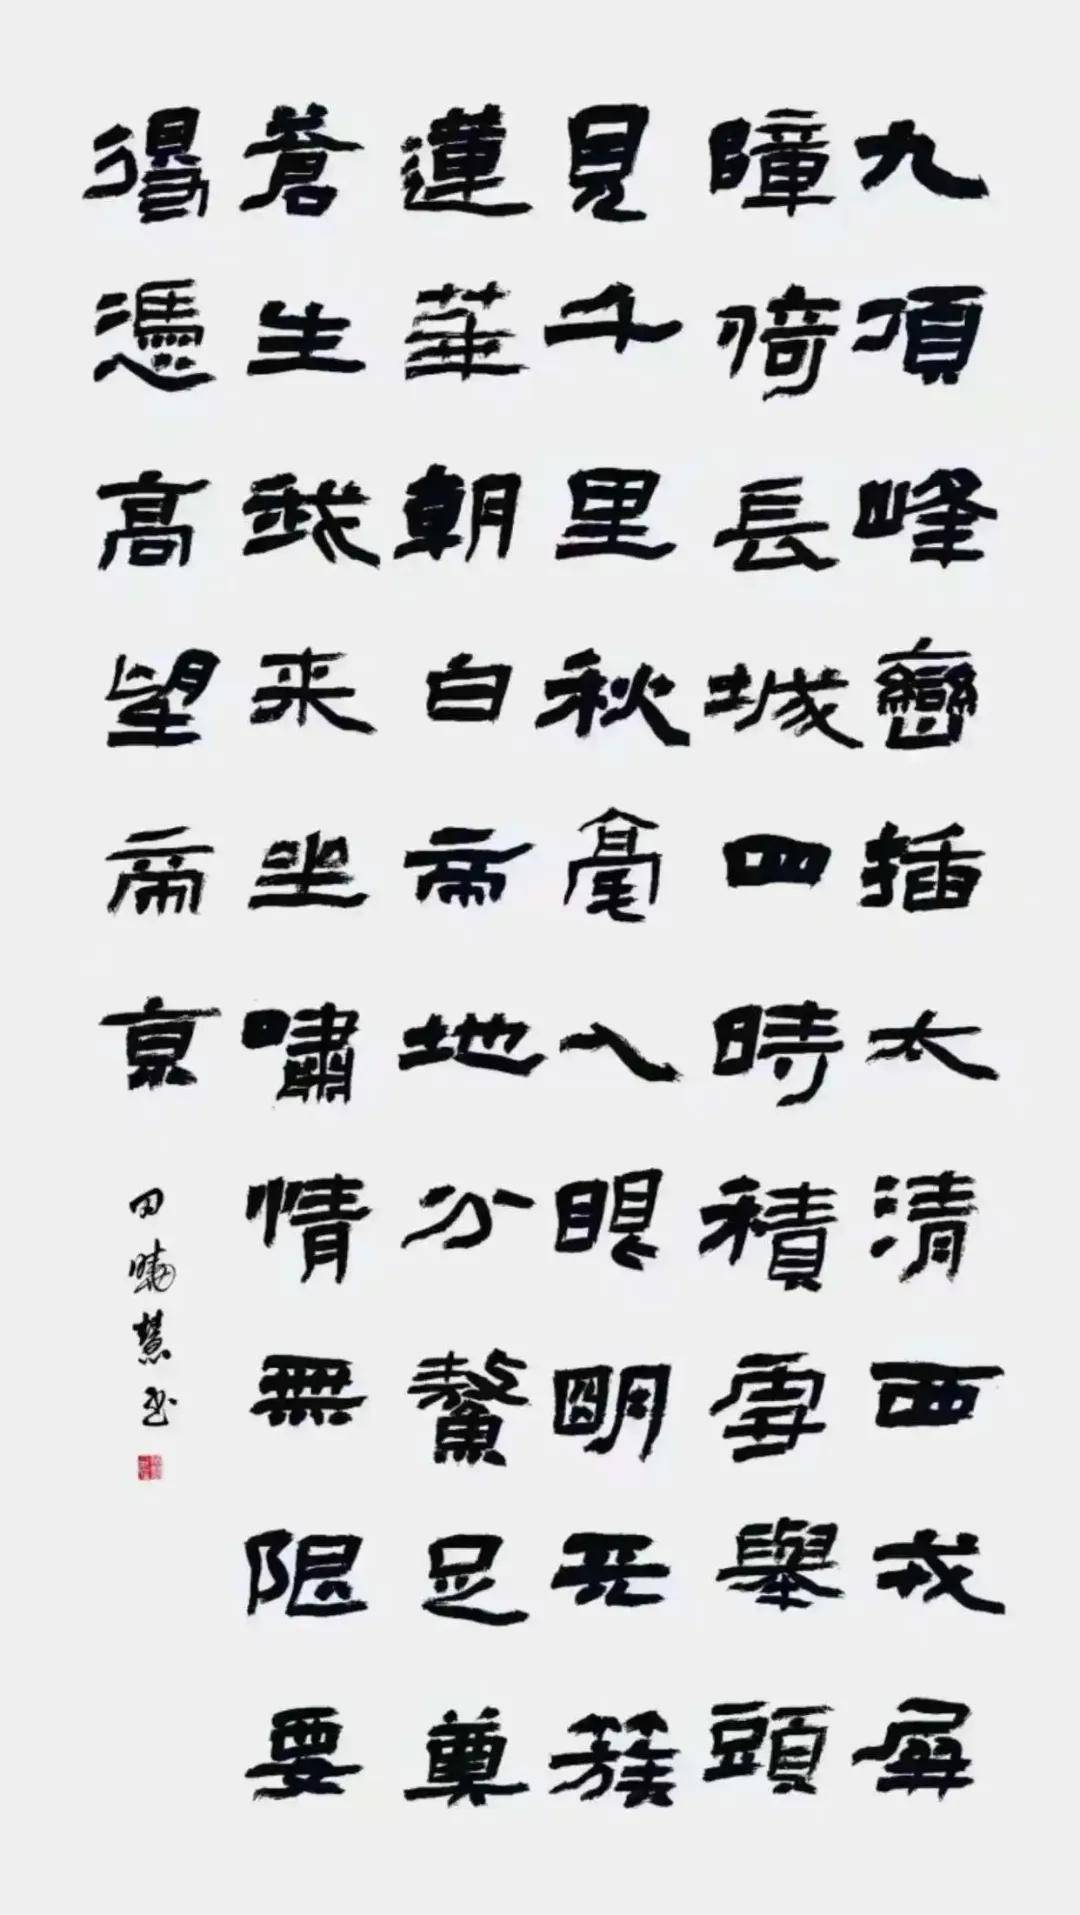 九頂峰巒插太清西戎屏
障倚長城四時積雪舉頭
見千里秋毫入眼明天簇
蓮華朝白帝地分鰲足奠
蒼生我来坐嘯情無限要
得憑高望帝京
田慧书